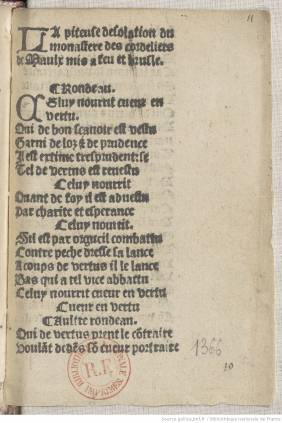 11
LA piteuse desolation du
monastere des cordeliers
de Maulx mis a feu et brusle.
¶Rondeau.
CEluy nourrit cueur en
vertu.
Qui de bon scauoir est vestu
Garni de loz & de prudence
Il est extime tresprudent: se
Tel de vertus est reuestu
Celuy nourrit
Quant de foy il est aduestu
par charite et esperance
Celuy nourrit.
Sil est par orgueil combattu
Contre peche dresse sa lance
A coups de vertus il le lance
Bas qui a tel vice abbatu
Celuy nourrit cueur en vertu
Cueur en vertu
¶Aultre rondeau.
Qui de vertus prent le cõtraire
Voulãt dedẽs sõ cueur portraire
1366
10
R.F.
Source gallica.bnf.fr / Bibliothèque nationale de France